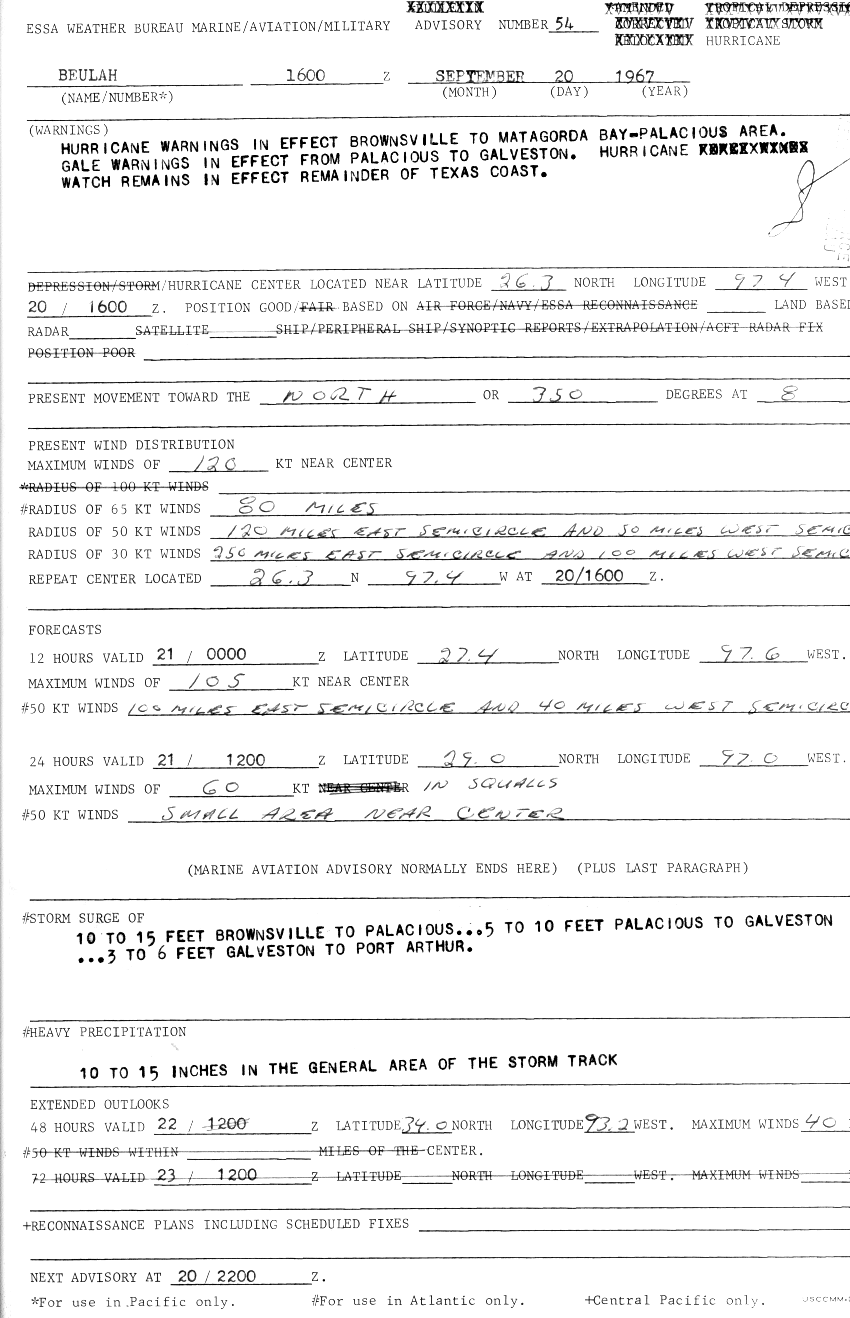 ESSA WEATHER BUREAU MARINE/AVIATION/MILITARY ADVISORY NUMBER 54
HURRICANE
BEULAH 1600 Z SEPTEMBER 20 1967
(NAME/NUMBER*) (MONTH) (DAY) (YEAR)
(WARNINGS)
HURRICANE WARNINGS IN EFFECT BROWNSVILLE TO MATAGORDA BAY-PALACIOUS AREA.
GALE WARNINGS IN EFFECT FROM PALACIOUS TO GALVESTON. HURRICANE
WATCH REMAINS IN EFFECT REMAINDER OF TEXAS COAST.
DEPRESSION/STORM/HURRICANE CENTER LOCATED NEAR LATITUDE 26.3 NORTH LONGITUDE 97 4 WEST
20 / 1600 Z. POSITION GOOD/FAIR BASED ON AIR FORCE/NAVY/ESSA RECONNAISSANCE LAND BASE
RADAR SATELLITE SHIP/PERIPHERAL SHIP/SYNOPTIC REPORTS/EXTRAPOLATION/ACFT RADAR FIX
POSITION POOR
PRESENT MOVEMENT TOWARD THE NORTH OR 350 DEGREES AT 8
PRESENT WIND DISTRIBUTION
MAXIMUM WINDS OF 120 KT NEAR CENTER
*RADIUS OF 100 KT WINDS
#RADIUS OF 65 KT WINDS 80 MILES
RADIUS OF 50 KT WINDS 120 MILES EAST SEMICIRCLE AND 50 MILES WEST SEMIC
RADIUS OF 30 KT WINDS 250 MILES EAST SEMICIRCLE AND 100 MILES WEST SEMIC
REPEAT CENTER LOCATED 26.3 N 97.4 W AT 20/1600 Z.
FORECASTS
12 HOURS VALID 21 / 0000 Z LATITUDE 27.4 NORTH LONGITUDE 97.6 WEST.
MAXIMUM WINDS OF 105 KT NEAR CENTER
#50 KT WINDS 100 MILES EAST SEMICIRCLE AND 40 MILES WEST SEMICIRC
24 HOURS VALID 21 / 1200 Z LATITUDE 29.0 NORTH LONGITUDE 97.0 WEST.
MAXIMUM WINDS OF 60 KT NEAR CENTER IN SQUALLS
#50 KT WINDS SMALL AREA NEAR CENTER
(MARINE AVIATION ADVISORY NORMALLY ENDS HERE) (PLUS LAST PARAGRAPH)
#STORM SURGE OF
10 TO 15 FEET BROWNSVILLE TO PALACIOUS...5 TO 10 FEET PALACIOUS TO GALVESTON
...3 TO 6 FEET GALVESTON TO PORT ARTHUR.
#HEAVY PRECIPITATION
10 TO 15 INCHES IN THE GENERAL AREA OF THE STORM TRACK
EXTENDED OUTLOOKS
48 HOURS VALID 22 / 1200 Z LATITUDE 34.0 NORTH LONGITUDE 93.2 WEST. MAXIMUM WINDS 40
#50 KT WINDS WITHIN MILES OF THE CENTER.
72 HOURS VALID 23 / 1200 Z LATITUDE NORTH LONGITUDE WEST. MAXIMUM WINDS
+RECONNAISSANCE PLANS INCLUDING SCHEDULED FIXES
NEXT ADVISORY AT 20 / 2200 Z.
*For use in Pacific only. #For use in Atlantic only. +Central Pacific only. USCCMM-